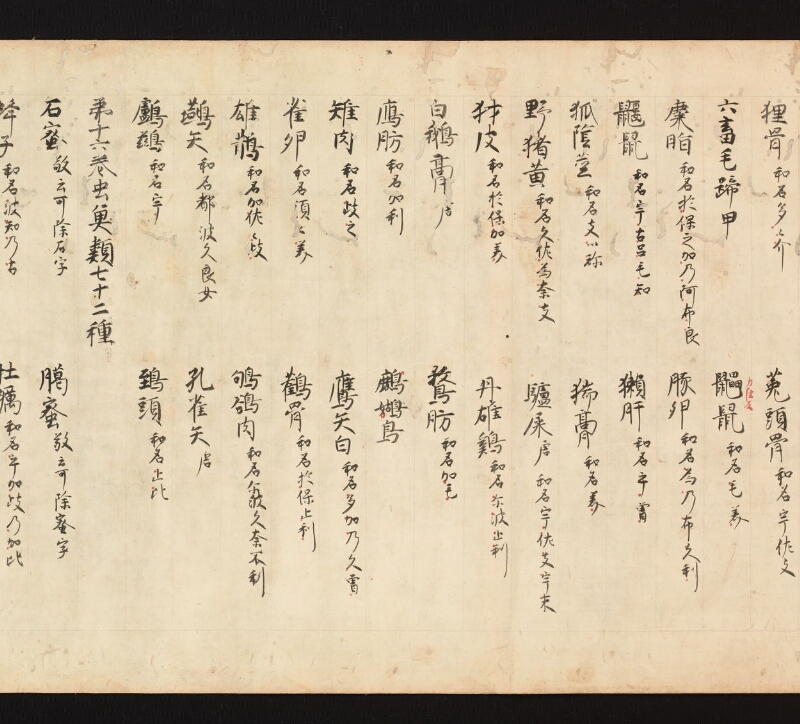 狸骨 和名多々介
菟頭骨 和名宇佐支
六畜毛蹄甲
鼺鼠 和名毛美
麋脂 和名於保之加乃阿布良
豚卵 和名為乃布久利
鼴鼠 和名宇古呂毛知
獺肝 和名乎曽
狐陰莖 和名支川祢
猯膏 和名美
野猪黄 和名久佐為奈支
驢屎 唐 和名宇佐支宇末
犲皮 和名於保加美
丹雄鷄 和名尓波止利
白鵝膏 唐
鶩肪 和名加毛
鴈肪 和名加利
鷓鴣鳥
雉肉 和名岐之
鷹矢白 和名多加乃久曽
雀卵 和名須々美
鸛骨 和名於保止利
雄鵲 和名加佐々岐
鴝鵒肉 和名
鷰矢 和名都波久良女
孔雀矢 唐
鸕鷀 和名宇
鵄頭 和名止比
第十六卷虫魚類七十二種
石蜜 敬云可除石字
臈蜜 敬云可除蜜字
蜂子 和名波知乃古
牡蠣 和名乎加岐乃加比